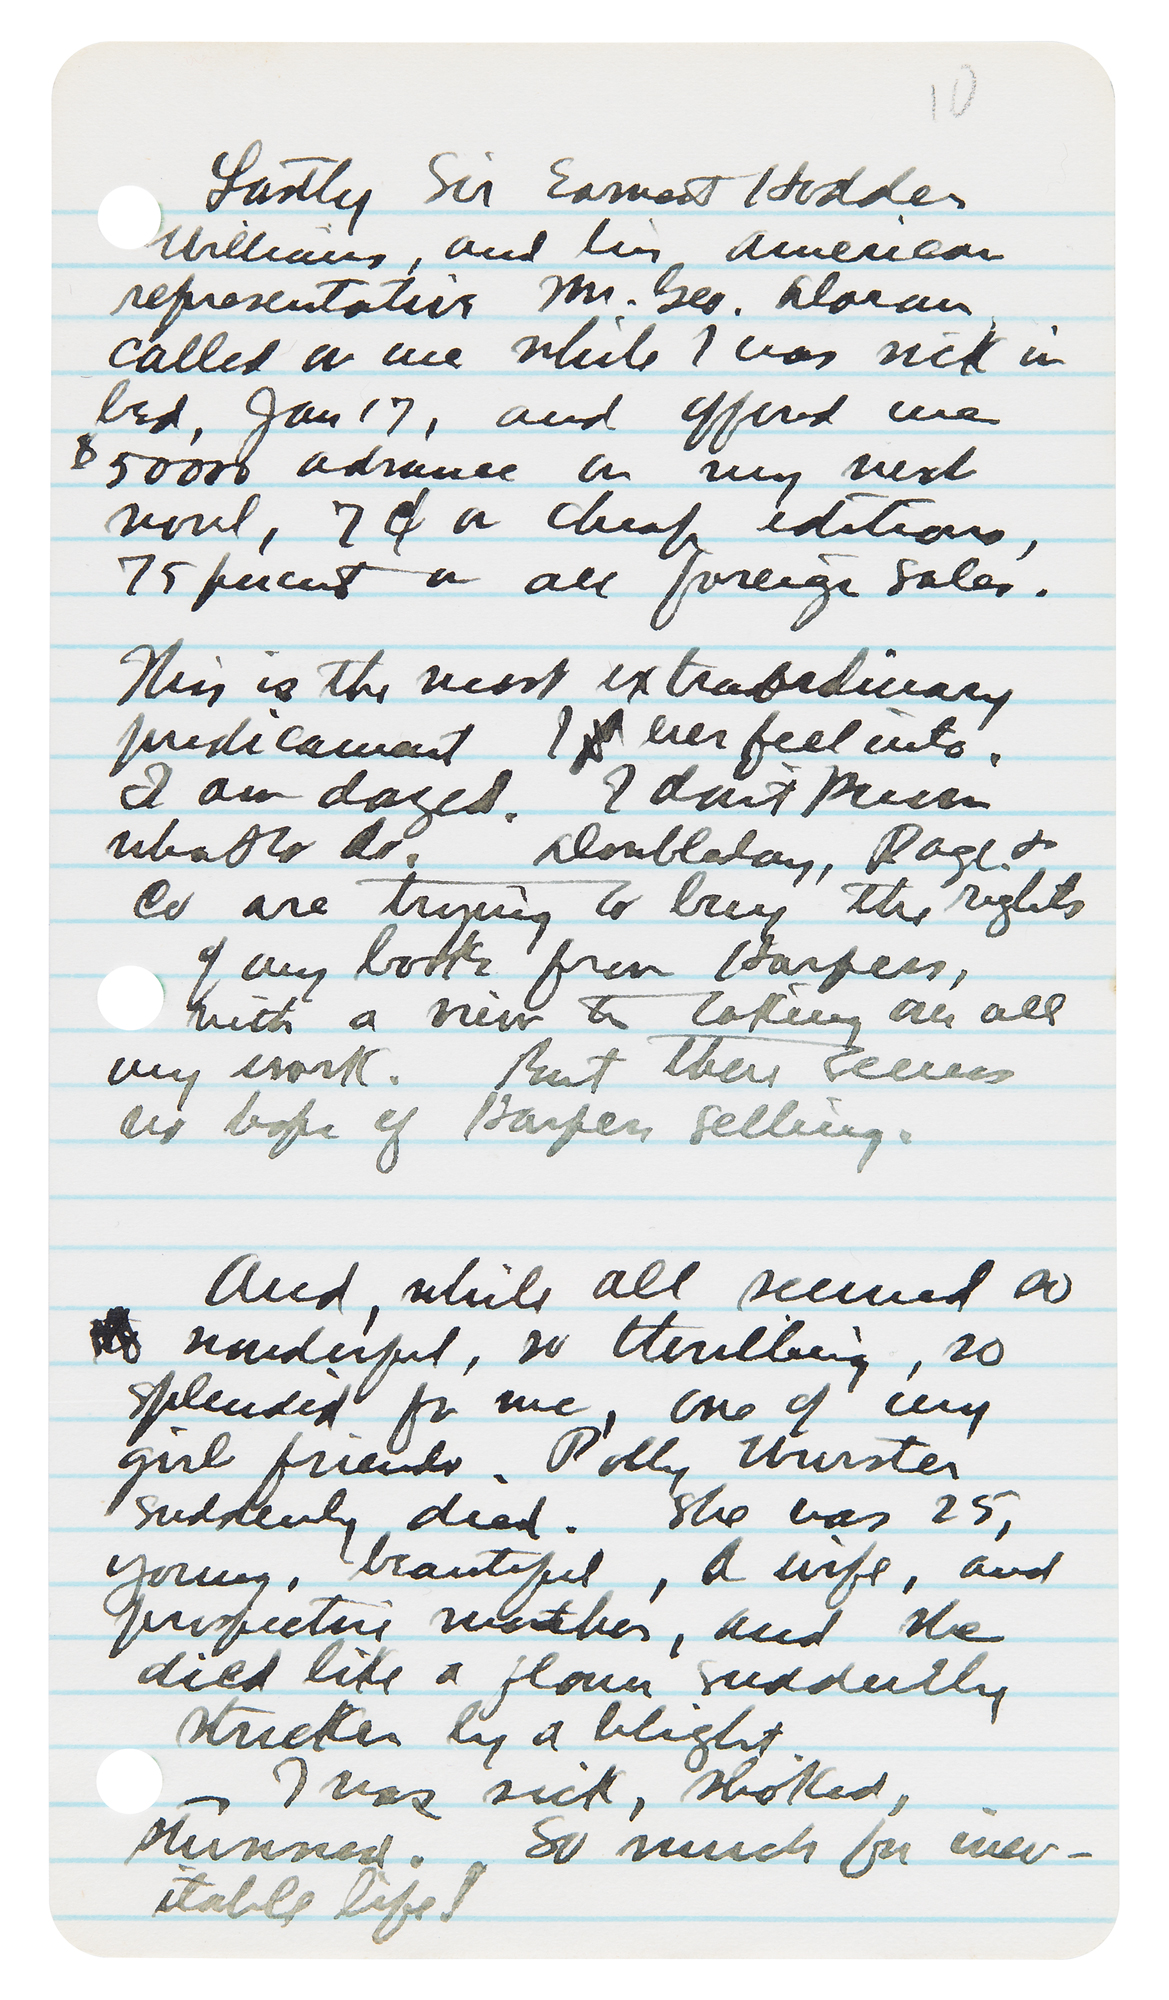 10
Lastly Sir Earnest Hodder
Williams, and his American
representative Mr. Geo. Doran
called on me while I was sick in
bed, Jan 17, and offered me
$50000 advance on my next
novel, 7¢ on cheap editions,
75 percent on all foreign sales.
This is the most extraordinary
predicament I ever feel into.
I am dazed. I don't know
what to do. Doubleday, Page &
Co are trying to buy the rights
of my books from Harpers,
with a view to taking on all
my work. But there seems
no hope of Harpers selling.
And, while all seemed so
wonderful, so thrilling, so
splendid for me, one of my
girl friends. Polly Wurster
suddenly died. She was 25,
young, beautiful, a wife, and
prospective mother, and she
died like a flower suddenly
stricken by a blight
I was sick, shoked,
stunned. So much for inev-
itable life!